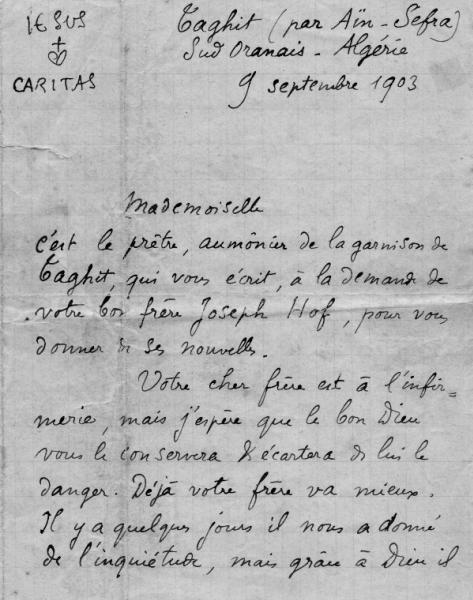 JESUS
CARITAS
Taghit (par Aïn-Sefra)
Sud Oranais - Algérie
9 septembre 1903
Mademoiselle
c'est le prêtre, aumônier de la garnison de
Taghit, qui vous écrit, à la demande de
votre bon frère Joseph Hof, pour vous
donner de ses nouvelles.
Votre cher frère est à l'infir=
merie, mais j'espère que le bon Dieu
vous le conservera & écartera de lui le
danger. Déjà votre frère va mieux.
Il y a quelques jours il nous a donné
de l'inquiétude, mais grâce à Dieu il